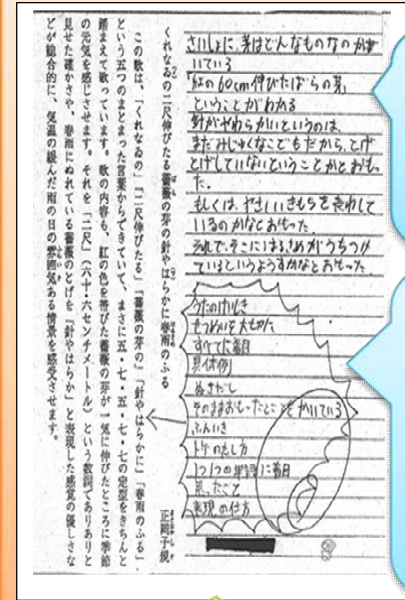 さいしょに、芽はどんなものなのか書
いている
「紅の60cm伸びたばらの芽」
ということがわかる
針がやわらかいというのは、
まだみじゅくなこどもだから、とげ
とげしていないということかとおもっ
た。
もしくは、やさしいきもちを表わして
いるのかなとおもった。
それで、そこにはるさめがうちつけ
ているというようすかなとおもった。
うたのけいしき
すべてに着目
具体例
ぬきだし
そのままおもったこと をかいている
ふんいき
1つ1つの単語に着目
思ったこと
表現の仕方
くれなゐの二尺伸びたる薔薇の芽の針やはらかに春雨のふる
正岡子規
この歌は、「くれなゐの」「二尺伸びたる」「薔薇の芽の」「針やはらかに」「春雨のふる」
という五つのまとまった言葉からできていて、まさに五・七・五・七・七の定型をきちんと
踏まえて歌っています。歌の内容も、紅の色を帯びた薔薇の芽が一気に伸びたところに季節
の元気を感じさせます。それを「二尺」（六十・六センチメートル）という数詞でありありと
見せた確かさや、春雨にぬれている薔薇のとげを「針やはらか」と表現した感覚の優しさな
どが総合的に、気温の緩んだ雨の日の雰囲気ある情景を感受させます。